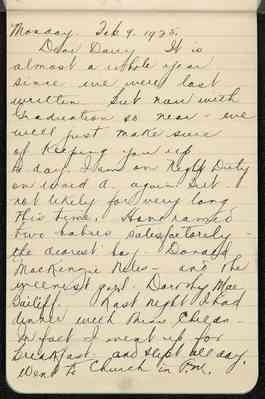 Monday. Feb. 9. 1925.
Dear Dairy It is
almost a whole year
since we were last
written. But now with
Graduation so near - we
will just make sure
of Keeping you up
to day. I am on Night Duty
on Ward A. again but
not likely for very long
This time. Have named
Two babies satisfactorily -
the dearest boy. Donald
MacKenzie - and the
weeniest girl. Dorothy Mae
Last night I had
dinner with Miss
In fact I went up for
breakfast - and slept all day.
Went to Church in P.M.